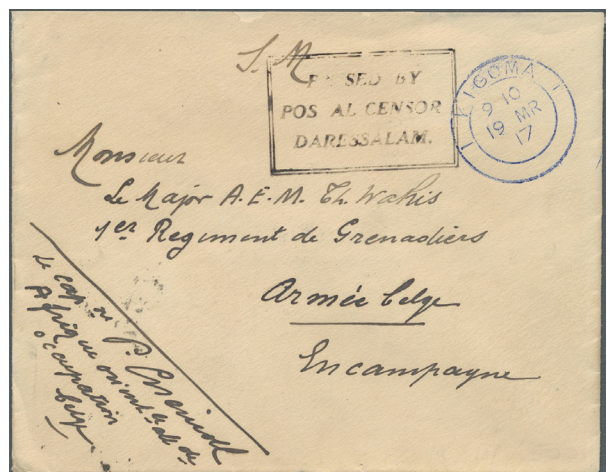 S. M.
PASSED BY
POSTAL CENSOR
DARESSALAM.
KIGOMA
9 10
19 MR
17
Monsieur
Le Major A.E.M. Th. Wahis
1er Regiment de Grenadiers
Armée belge
En campagne
Le cap
P.
Afrique orientale all de
occupation
belge